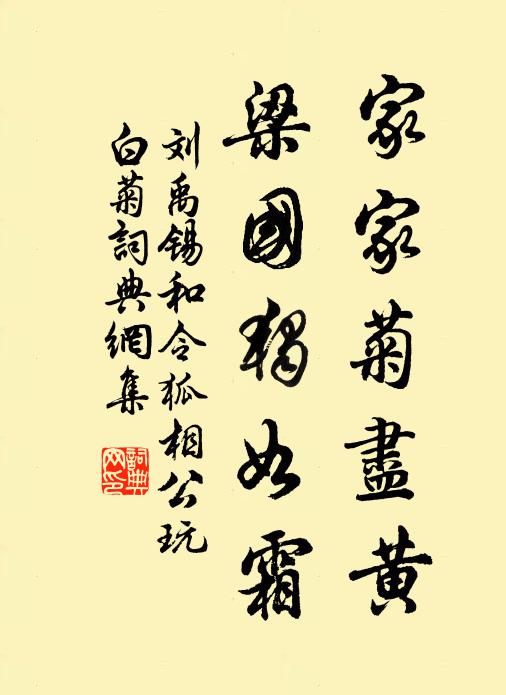 家家菊盡黄
梁國獨如霜
刘禹錫和令狐相公玩
白菊詞典網集
詞典
网印